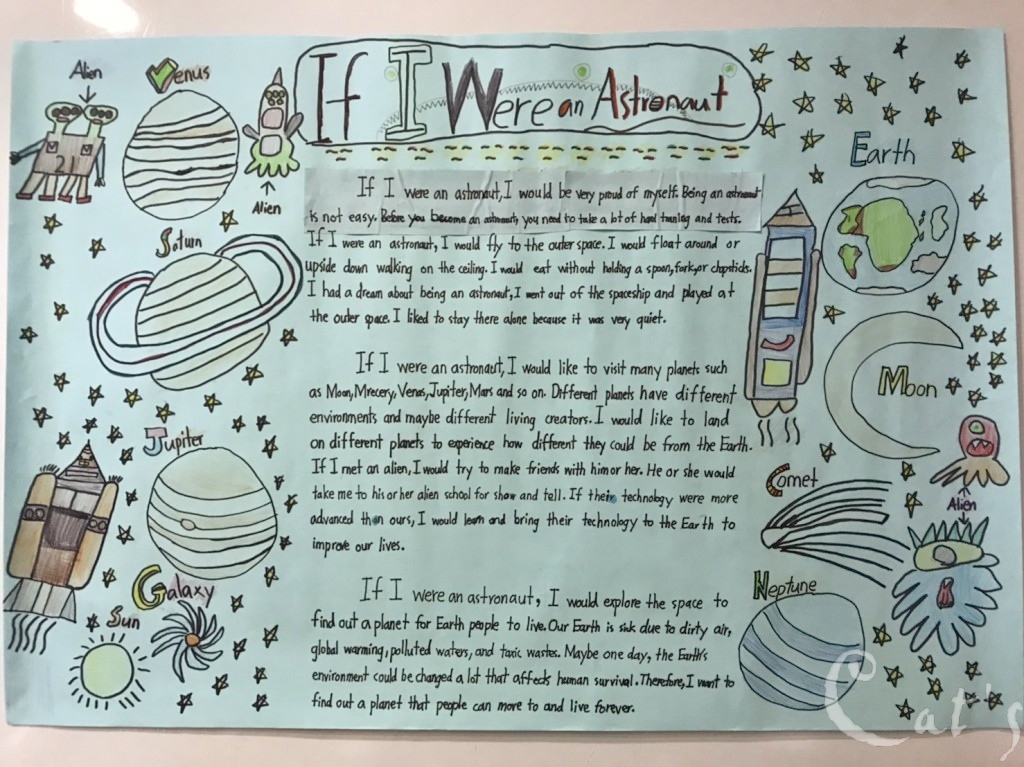 If I Were an Astronaut
Alien
Venus
Alien
Saturn
Jupiter
Galaxy
Sun
If I were an astronaut, I would be very proud of myself. Being an astronaut
is not easy. Before you become an astronaut, you need to take a lot of hard training and tests.
If I were an astronaut, I would fly to the outer space. I would float around or
upside down walking on the ceiling. I would eat without holding a spoon, fork, or chopsticks.
I had a dream about being an astronaut, I went out of the spaceship and played at
the outer space. I liked to stay there alone because it was very quiet.
If I were an astronaut, I would like to visit many planets such
as Moon, Mrecery, Venus, Jupiter, Mars and so on. Different planets have different
environments and maybe different living creators. I would like to land
on different planets to experience how different they could be from the Earth.
If I met an alien, I would try to make friends with him or her. He or she would
take me to his or her alien school for show and tell. If their technology were more
advanced than ours, I would learn and bring their technology to the Earth to
improve our lives.
If I were an astronaut, I would explore the space to
find out a planet for Earth people to live. Our Earth is sick due to dirty air,
global warming, polluted waters, and toxic wastes. Maybe one day, the Earth's
environment could be changed a lot that affects human survival. Therefore, I want to
find out a planet that people can move to and live forever.
Earth
Moon
Comet
Alien
Neptune
21
Cat's